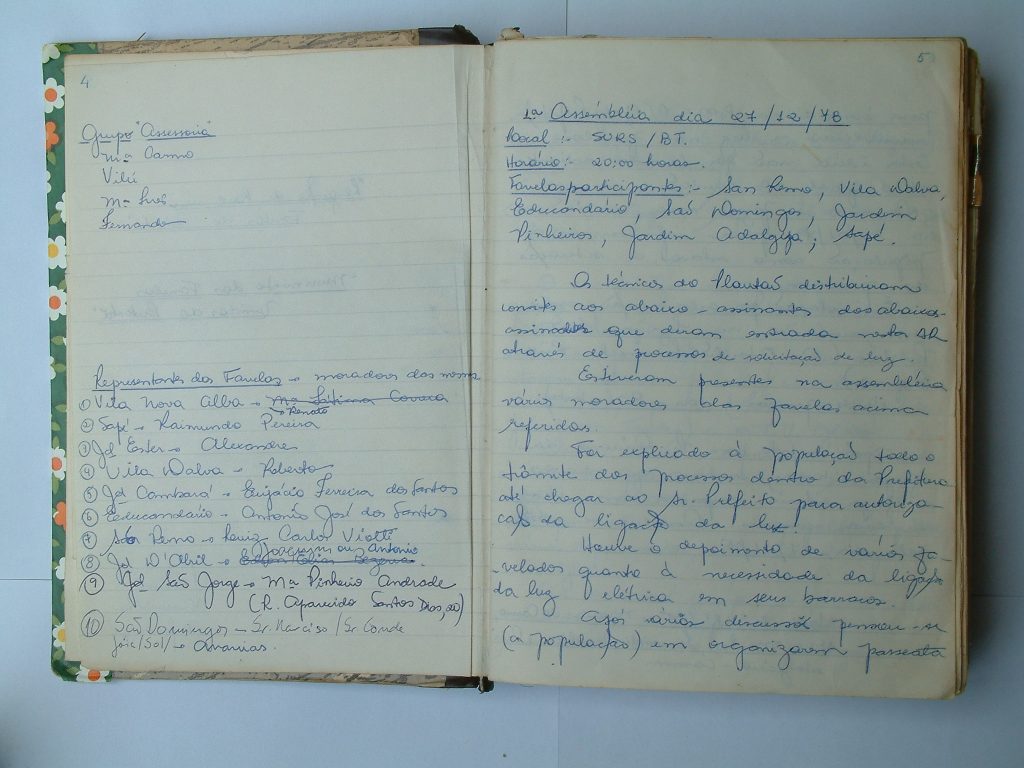 4
Grupo "Assessoria"
Mª Carmo
Mª Inês
Fernando
Representantes das Favelas → moradores das mesmas
① Vila Nova Alba → Mª Correca
Renato
② Sapé → Raimundo Pereira
③ Jd Ester → Alexandre
④ Vila Dalva → Roberto
⑤ Jd Cambará → Ferreira dos Santos
⑥ Educandário → Antonio José dos Santos
⑦ São Remo → Luiz Carlos Viotti
Joaquim ou Antonio
⑧ Jd D'Abril →
⑨ Jd São Jorge → Mª Pinheiro Andrade
(R. Aparecido Santos Dias, 20)
⑩ São Domingos – Sr. Narciso / Sr. Conde
josé/Sol/→ Ananias.
5
1ª Assembléia dia 27/12/78
Local :- SURS / BT.
Horário:- 20:00 horas.
Favelas participantes:- San Remo, Vila Dalva,
Educandário, São Domingos, Jardim
Pinheiros, Jardim Adalgiza, Sapé.
Os técnicos do Plantão distribuiram
convites aos abaixo-assinantes dos abaixos-
assinados que deram entrada nesta AR
através de processos de solicitação de luz.
Estiveram presentes na assembléia
vários moradores das favelas acima
referidas.
Foi explicado à população todo o
trâmite dos processos dentro da Prefeitura
até chegar ao Sr. Prefeito para autoriza-
ção da ligação da luz.
Houve o depoimento de vários fa-
velados quanto à necessidade da ligação
da luz elétrica em seus barracos.
Após vários discussões pensou-se
(a população) em organizarem passeata